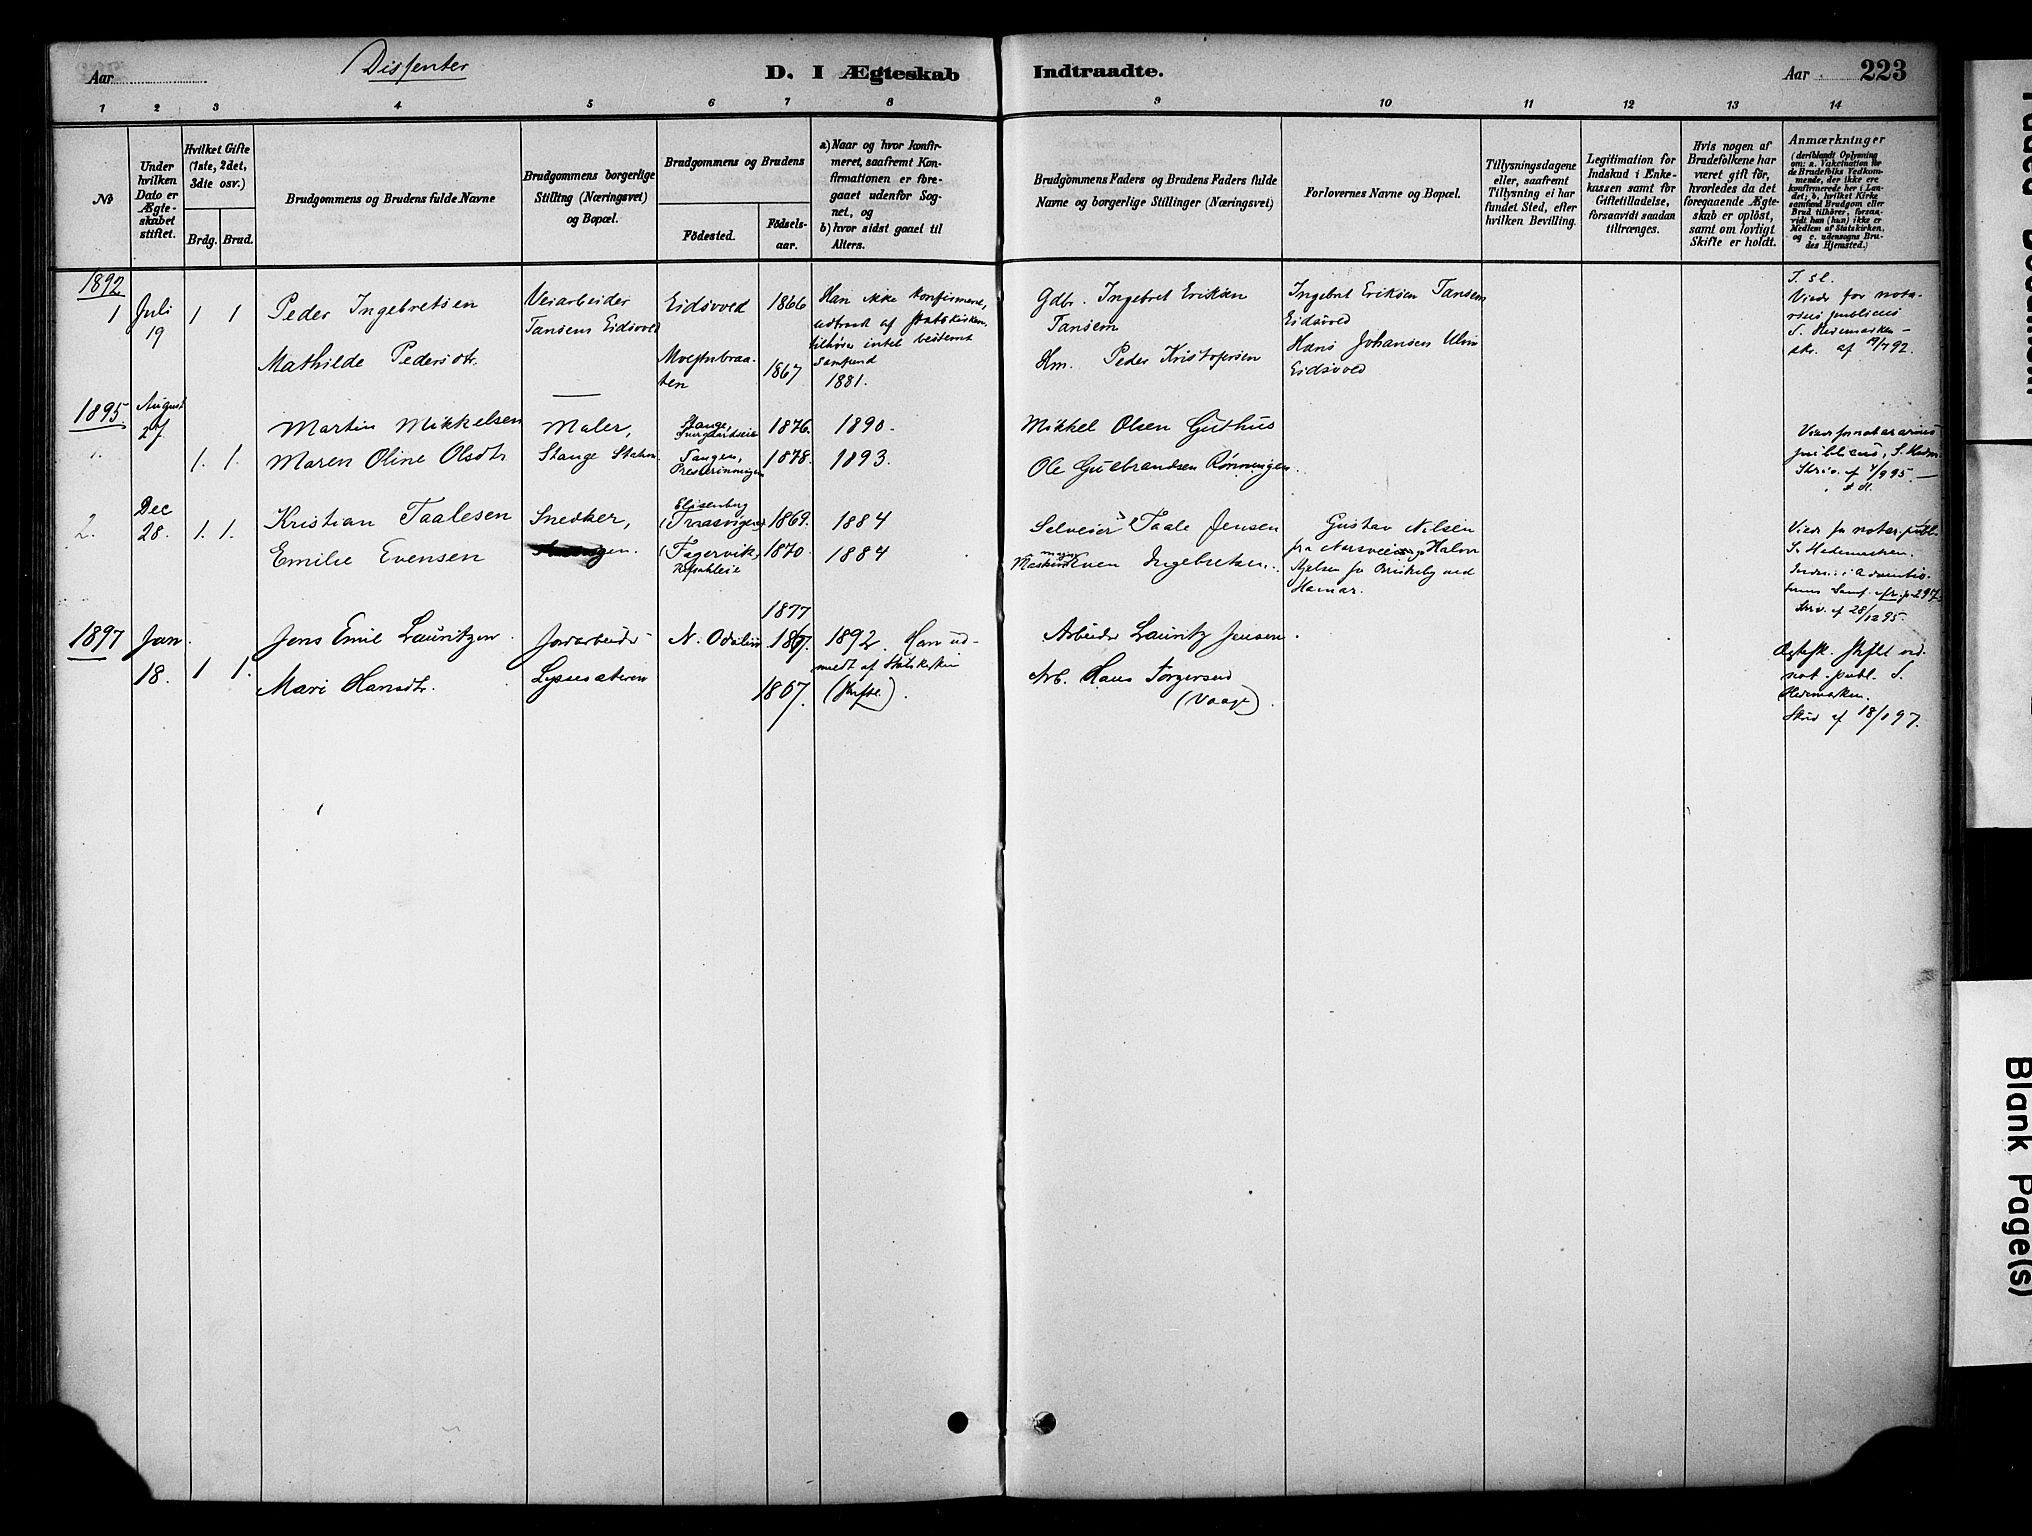 Aar
Dissenter
D. I Ægteskab
Indtraadte.
Aar
223
1 2 3 4 5 6 7 8 9 10 11 12 13 14
No
Under hvilken Dato er Ægteskabet stiftet.
Hvilket Gifte (1ste, 2det, 3die osv.)
Brdg. Brud.
Brudgommens og Brudens fulde Navne
Brudgommens borgerlige Stilling (Næringsvei) og Bopæl.
Brudgommens og Brudens
Födested.
Födselsaar.
a) Naar og hvor konfirmeret, saafremt Konfirmationen er foregaaet udenfor Sognet, og
b) hvor sidst gaaet til Alters.
Brudgommens Faders og Brudens Faders fulde Navne og borgerlige Stillinger (Næringsvei)
Forlovernes Navne og Bopæl.
Tillysningsdagene eller, saafremt Tillysning ei har fundet Sted, efter hvilken Bevilling.
Legitimation for Indskud i Enkekassen samt for Giftetilladelse, forsaavidt saadan tiltrænges.
Hvis nogen af Brudefolkene har været gift för, hvorledes da det foregaaende Ægteskab er oplöst, samt om lovligt Skifte er holdt.
Anmærkninger
(deriblandt Oplysning om: a. Vaccination for de Brudefolks Vedkommende, der ikke ere konfirmerede her i Landet; b. hvilket Kirkesamfund Brudgom eller Brud tilhörer, forsaavidt han (hun) ikke er Medlem af Statskirken, og c. udensogns Brudes Hjemsted.)
1892
1
Juli
19
1 1
Peder Ingebretsen
Veiarbeider
Tansens Eidsvold
Eidsvold
1866
Han ikke konfirmeret,
udtraadt af Statskirken,
tilhører intet bestemt
Samfund
Gdbr. Ingebret Eriksen
Tansem
Ingebret Eriksen Tansem
Eidsvold
Mathilde Pedersdtr.
1867
1881.
Hm. Peder Kristofersen
Hans Johansen Ulvin
Eidsvold
Viede for nota-
rius publicus
S. Hedemarken
skr. af 19/7 92.
1895
August
27
1.
1. 1.
Martin Mikkelsen
Maler,
Stange,
1876.
1890.
Mikkel Olsen Guthus
Maren Oline Olsdtr
Stange Station
Tangen,
1878.
1893.
Ole Gulbrandsen Rønningen.
Viede for notarius
publicus, S. Hedm.
Skriv. af 4/9 95.
2.
Dec
28.
1. 1.
Kristian Taalesen
Snedker,
Elisenberg
1869.
1884
Selveier Taale Jensen
Gustav Nilsen
Emilie Evensen
(Fagervik,
1870.
1884
Even Ingebretsen.
Halvor
fra Briskeby ved
Hamar.
Viede for notar. publ.
S. Hedemarken.
Skriv. af 28/12 95.
1897
Jan.
18.
1 1.
Jens Emil Lauritzen.
Jordarbeider
N. Odalen
1877
1867.
1892. Han ud-
meldt af Statskirken
Arbeider Lauritz Jensen.
Mari Hansdtr.
1867.
Arb. Hans Torgersen
(Vaage).
Ægtesk. stiftet ved
not. publ. S.
Hedemarken.
Skriv af 18/1 97.
Blank Page(s)